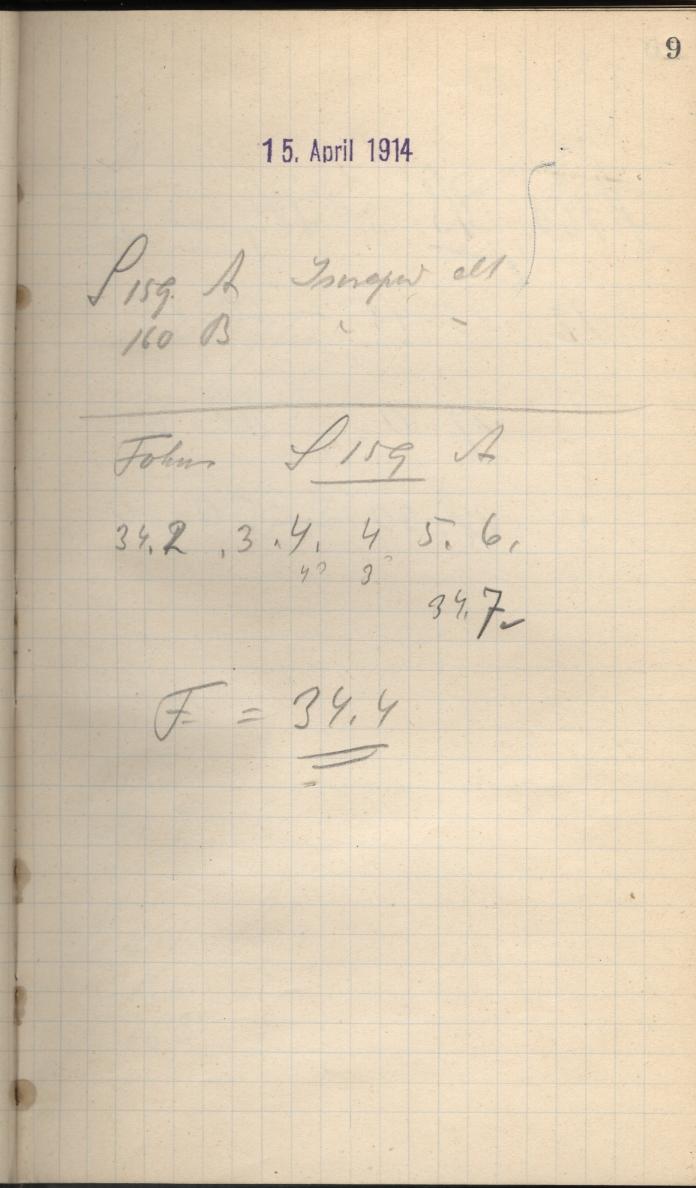 9
15. April 1914
S 159. A alt
160 B " "
S 159 A
34.2 .3 .4. 4 5. 6.
4? 3?
34.7
F = 34.4